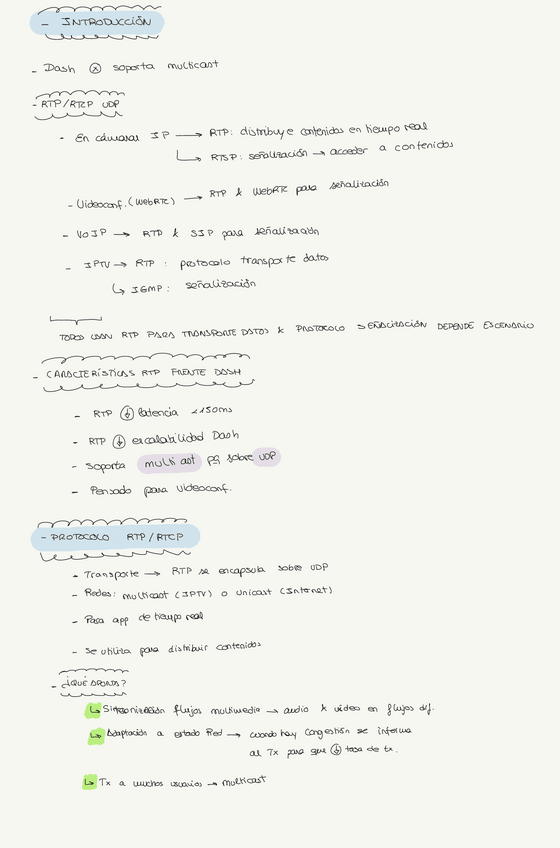 - INTRODUCCIÓN
- Dash ⊗ soporta multicast
- RTP/RTCP UDP
- En cámaras IP → RTP: distribuye contenidos en tiempo real
↳ RTSP: señalización → acceder a contenidos
- Videoconf. (WebRTC) → RTP & WebRTC para señalización
- VoIP → RTP & SIP para señalización
- IPTV → RTP: protocolo transporte datos
↳ IGMP: señalización
TODOS USAN RTP PARA TRANSPORTE DATOS & PROTOCOLO SEÑALIZACIÓN DEPENDE ESCENARIO
- CARACTERÍSTICAS RTP FRENTE DASH
- RTP ↓ latencia <150ms
- RTP ↓ escalabilidad Dash
- Soporta multicast pq sobre UDP
- Pensado para videoconf.
- PROTOCOLO RTP/RTCP
- Transporte → RTP se encapsula sobre UDP
- Redes: multicast (IPTV) o unicast (Internet)
- Para app de tiempo real
- Se utiliza para distribuir contenidos
- ¿QUÉ APORTA?
↳ Sincronización flujos multimedia → audio & video en flujos dif.
↳ Adaptación a estado Red → cuando hay congestión se informa
al Tx para que ↓ tasa de tx.
↳ Tx a muchos usuarios → multicast